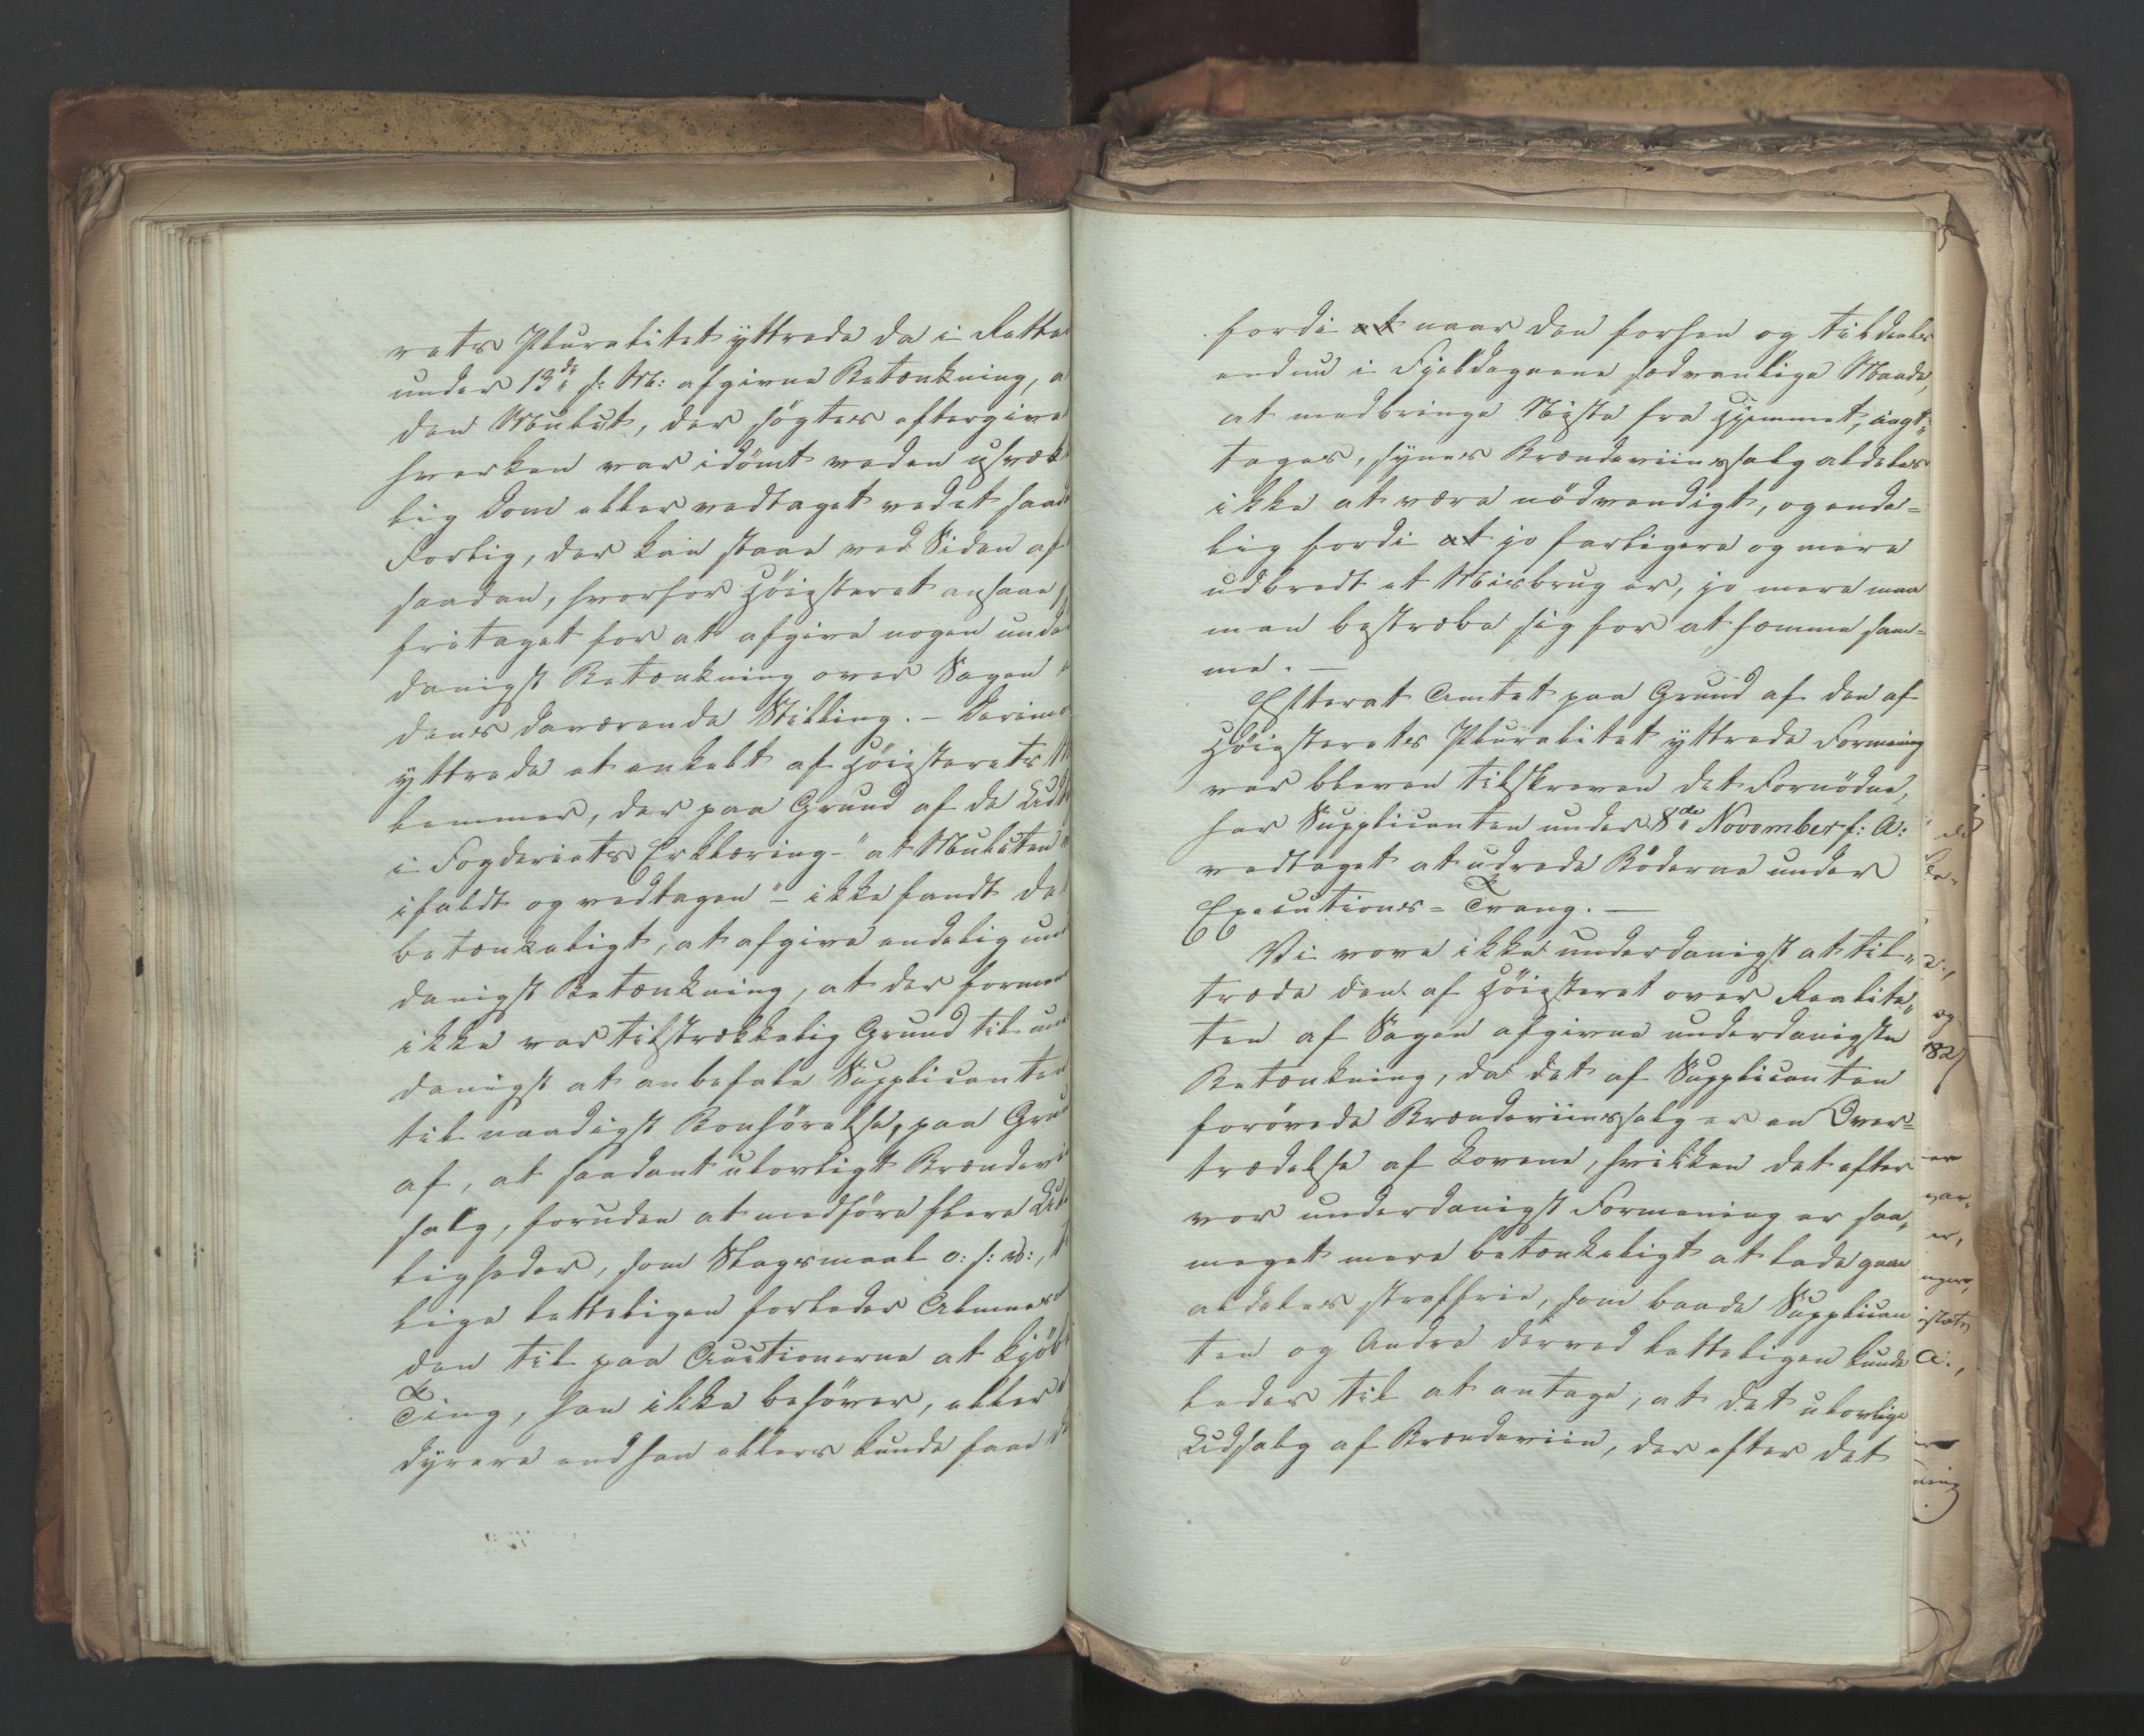 rets Pluralitet yttrede da i Rette
under 13de s: M: afgivne Betænkning, a
den Mulct, der søgtes eftergive
hverken var idømt ved en egentlig
lig Dom eller vedtaget ved et saad
Forlig, der kan staae ved Siden af
saadan, hvorfor Høiesteret ansaae
fritaget for at afgive nogen unde
danigst Betænkning over Sagen
dens daværende Stilling. – Derimo
yttrede et enkelt af Høiesterets M
lemmer, der paa Grund af de Udt
i Fogderiets Erklæring – "at Mulcten
ifaldt og vedtagen" – ikke fandt de
betænkeligt, at afgive endelig und
danigst Betænkning, at der formeen
ikke var tilstrækkelig Grund til und
danigst at anbefale Supplicanten
til naadigst Bønhørelse, paa Gru
af, at saadant ulovligt Brændevi
salg, foruden at medføre flere Ul
ligheder, som Slagsmaal o: s: v:,
lige letteligen forleder Almues
den til paa Auctionerne at kjøb
Ting, han ikke behøver, eller
dyrere end han ellers kunde faae d
fordi at naar den forhen og tildeels
endnu i Fjelddegnene sædvanlige Maade,
at medbringe Niste fra Hjemmet, iagt-
tages, synes Brændeviinssalg aldeles
ikke at være nødvendigt, og ende-
lig fordi at jo farligere og mere
udbredt et Misbrug er, jo mere maa
man bestræbe sig for at hemme sam-
me. –
Efterat Amtet paa Grund af den af
Høiesterets Pluralitet yttrede Formening
var bleven tilskreven det Fornødne,
har Supplicanten under 8de November f: A:
vedtaget at udrede Bøderne under
Executions-Tvang. –
Vi vove ikke underdanigst at til-
træde den af Høiesteret over Realite-
ten af Sagen afgivne underdanigste
Betænkning, da det af Supplicanten
forøvede Brændeviinssalg er en Over-
trædelse af Loven, hvilken det efter
vor underdanigst Formening er saa-
meget mere betænkeligt at lade gaae
aldeles straffrie, som baade Supplican
ten og Andre derved letteligen kunde
ledes til at antage, at det ulovlige
Udsalg af Brændeviin, der efter det
og
182
er
var-
er,
A:,